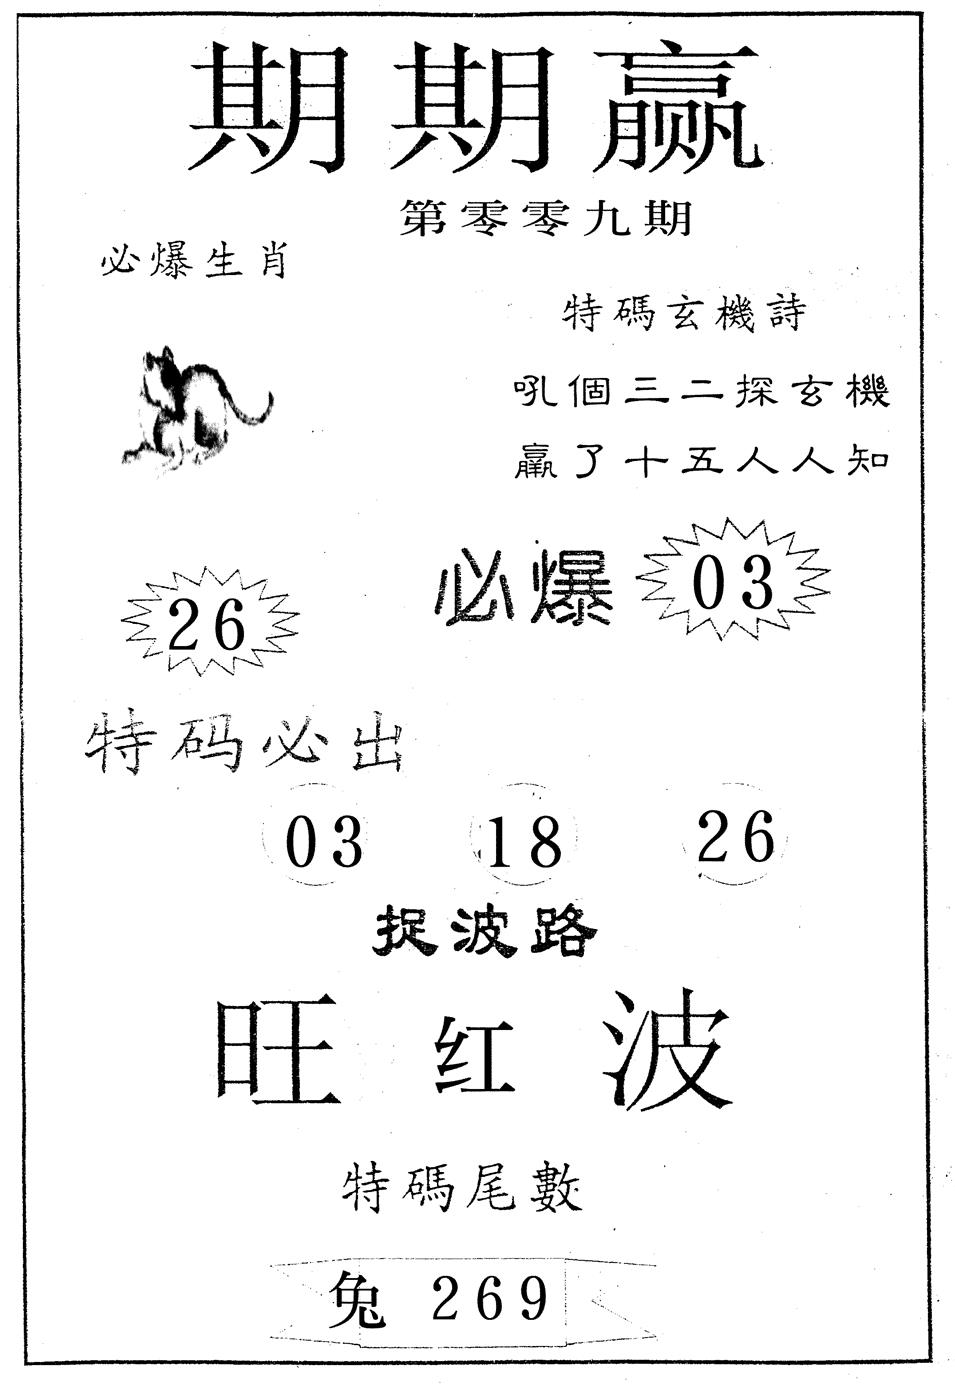 期期赢
第零零九期
必爆生肖
特碼玄機詩
吼個三二探玄機
贏了十五人人知
必爆 03
26
特码必出
03 18 26
捉波路
旺红波
特碼尾數
兔 269